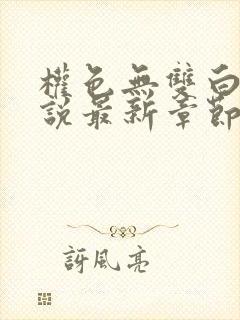 權色無雙白
說最新章節
訝風亮